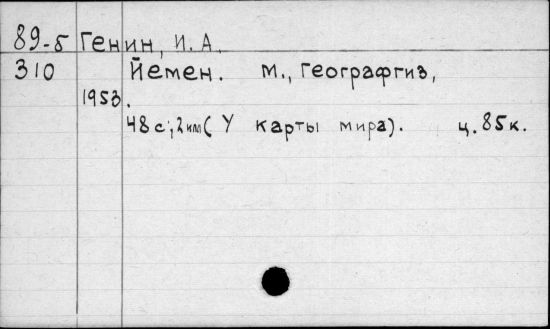 89-5 Генин, И. А.
310 Йемен. М., Географгиз,
1953.
48 с; 2 илл (У карты мира). ц. 85 к.